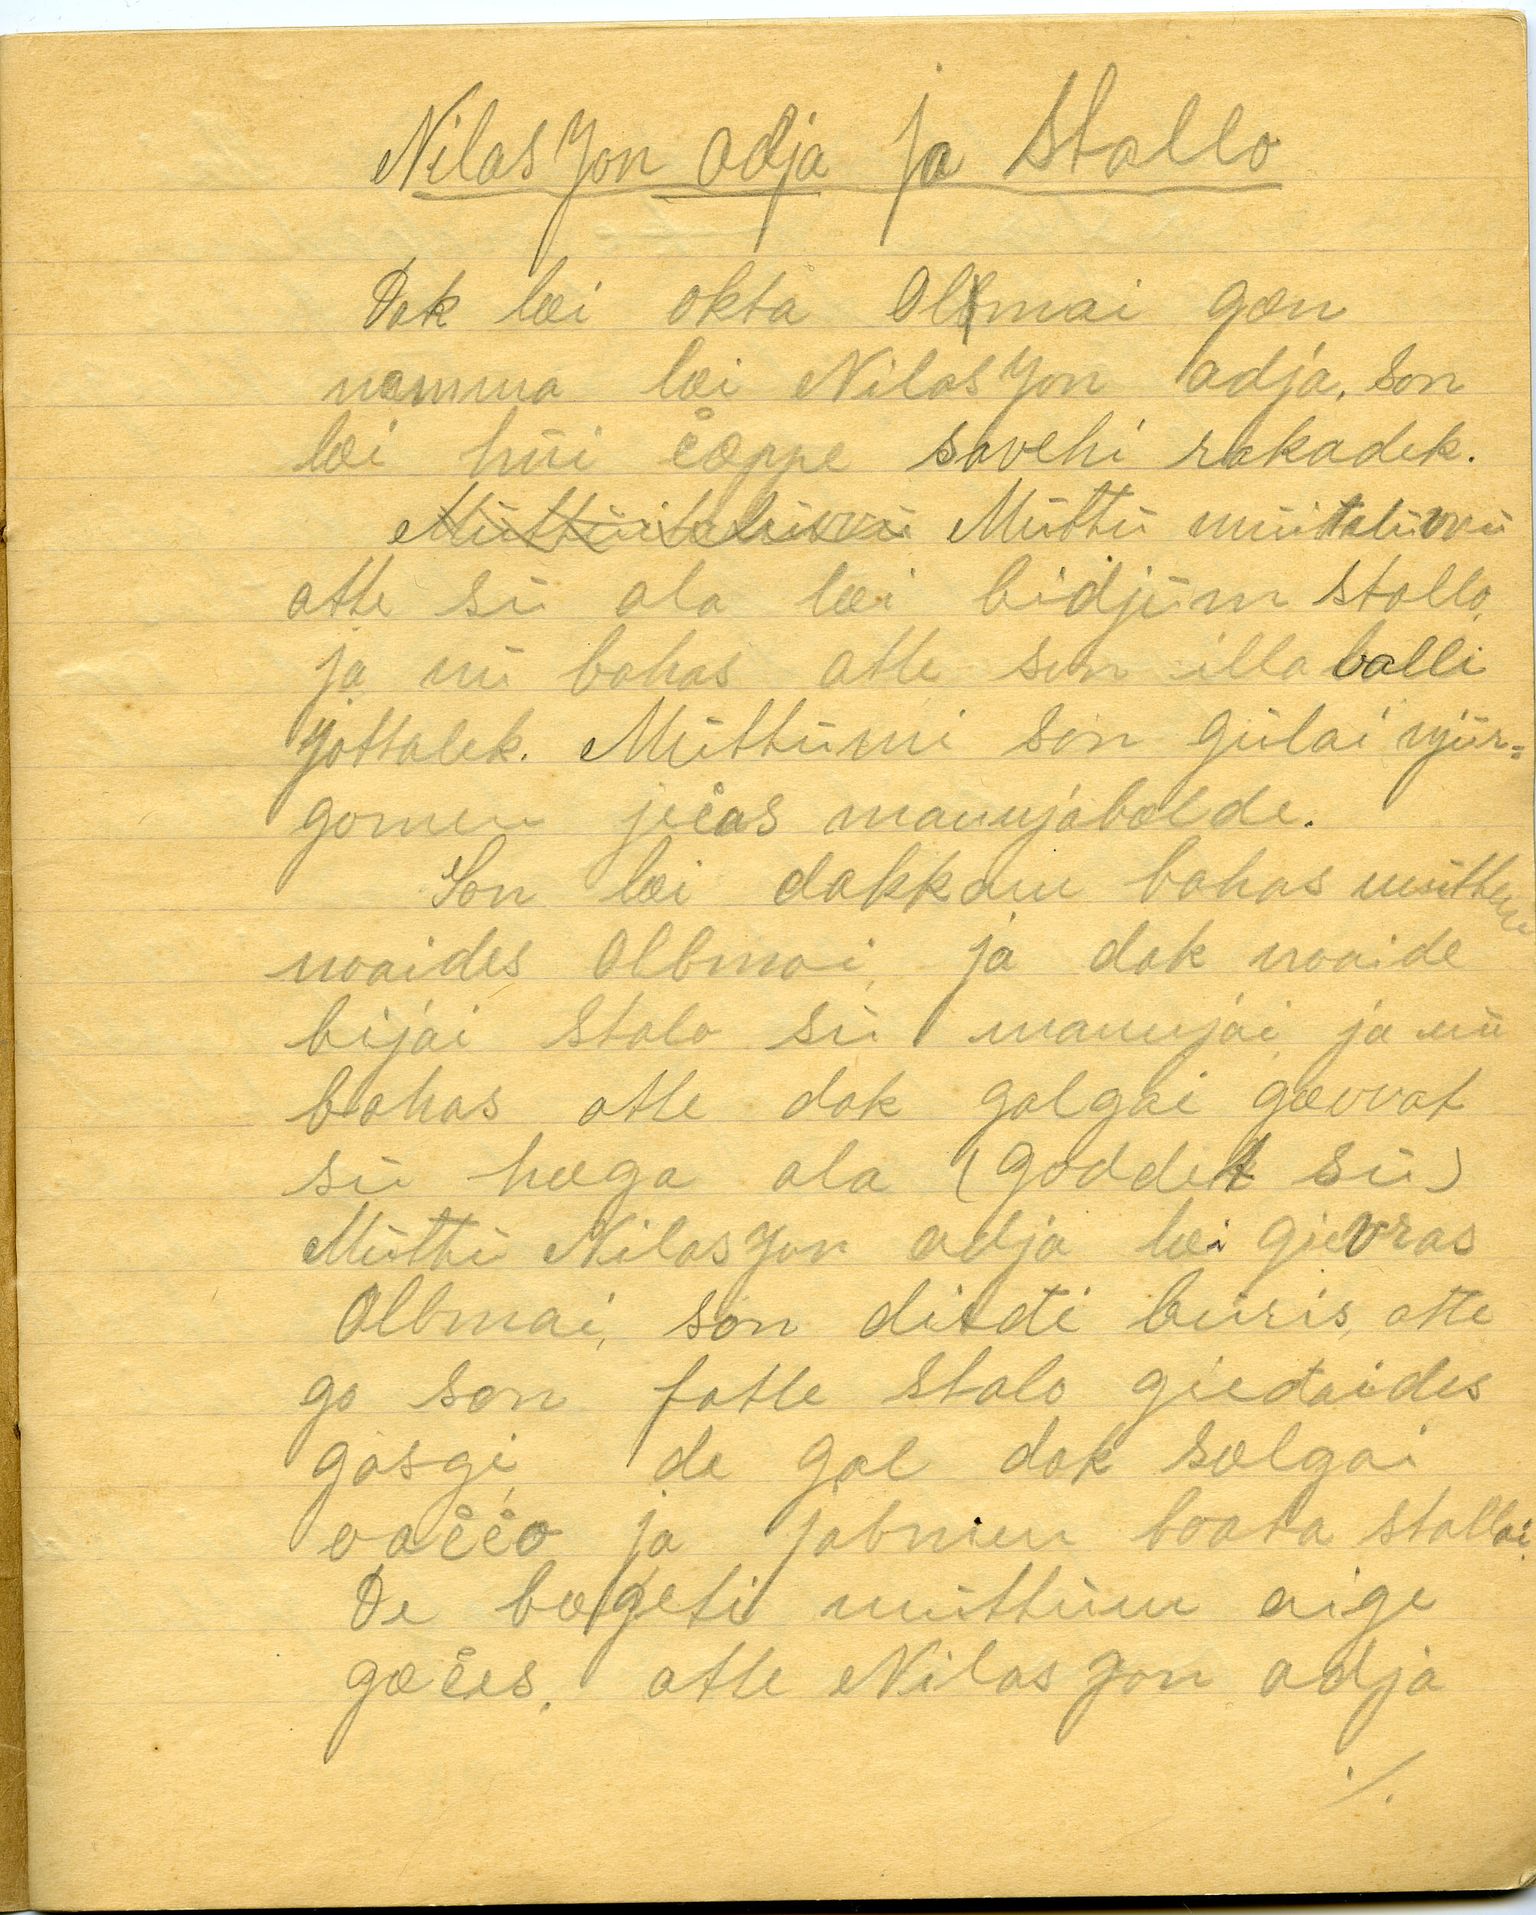 Nilas Jon adja ja Stallo
Dak læi okta Olbmai gæn
namma læi Nilas Jon adja, son
læi hüi čæppe savehi rakadek.
Müttü müitalüvvü
atte sü ala læi bidjüm stallo,
ja nü bahas atte son illa balli
jottalek. Müttümi son gülai njür=
gomen ječas mannjabælde.
Son læi dakkam bahas müttem
noaides Olbmai, ja dak noaide
bijai stalo sü mannjai, ja nü
bahas atte dak galgai gævvat
sü hæga ala (goddet sü)
Müttü Nilas Jon adja læi gievras
Olbmai, son ditdi büris, atte
go son fatte stalo giedaides
gasgi, de gal dak sælgai
oaččo ja jabmen boata stallai.
De bægeti müttüm aige
gæčes, atte Nilas Jon adja
./.